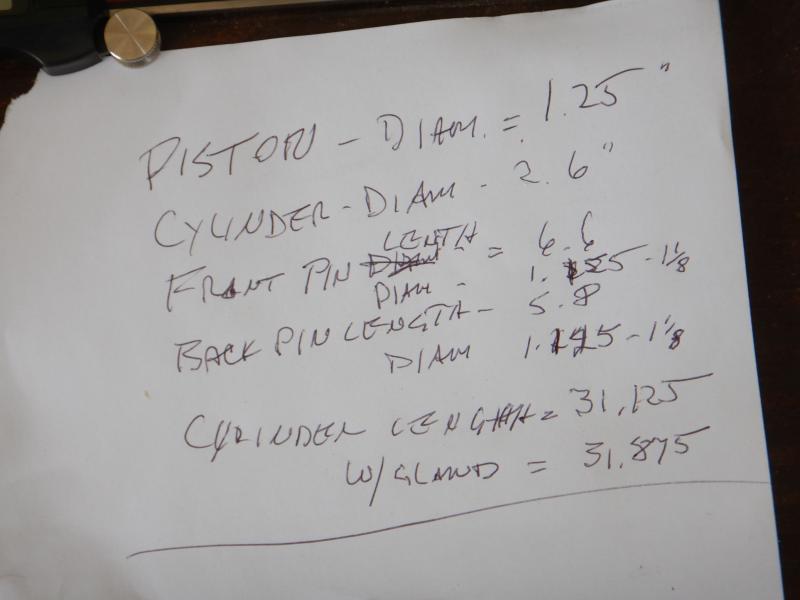 PISTON - DIAM. = 1.25"
CYLINDER - DIAM - 2.6"
FRONT PIN LENTH = 6.6
DIAM - 1.125 - 1 1/8
BACK PIN LENGTH - 5.8
DIAM 1.125 - 1 1/8
CYLINDER LENGTH = 31.125
W/GLAND = 31.875